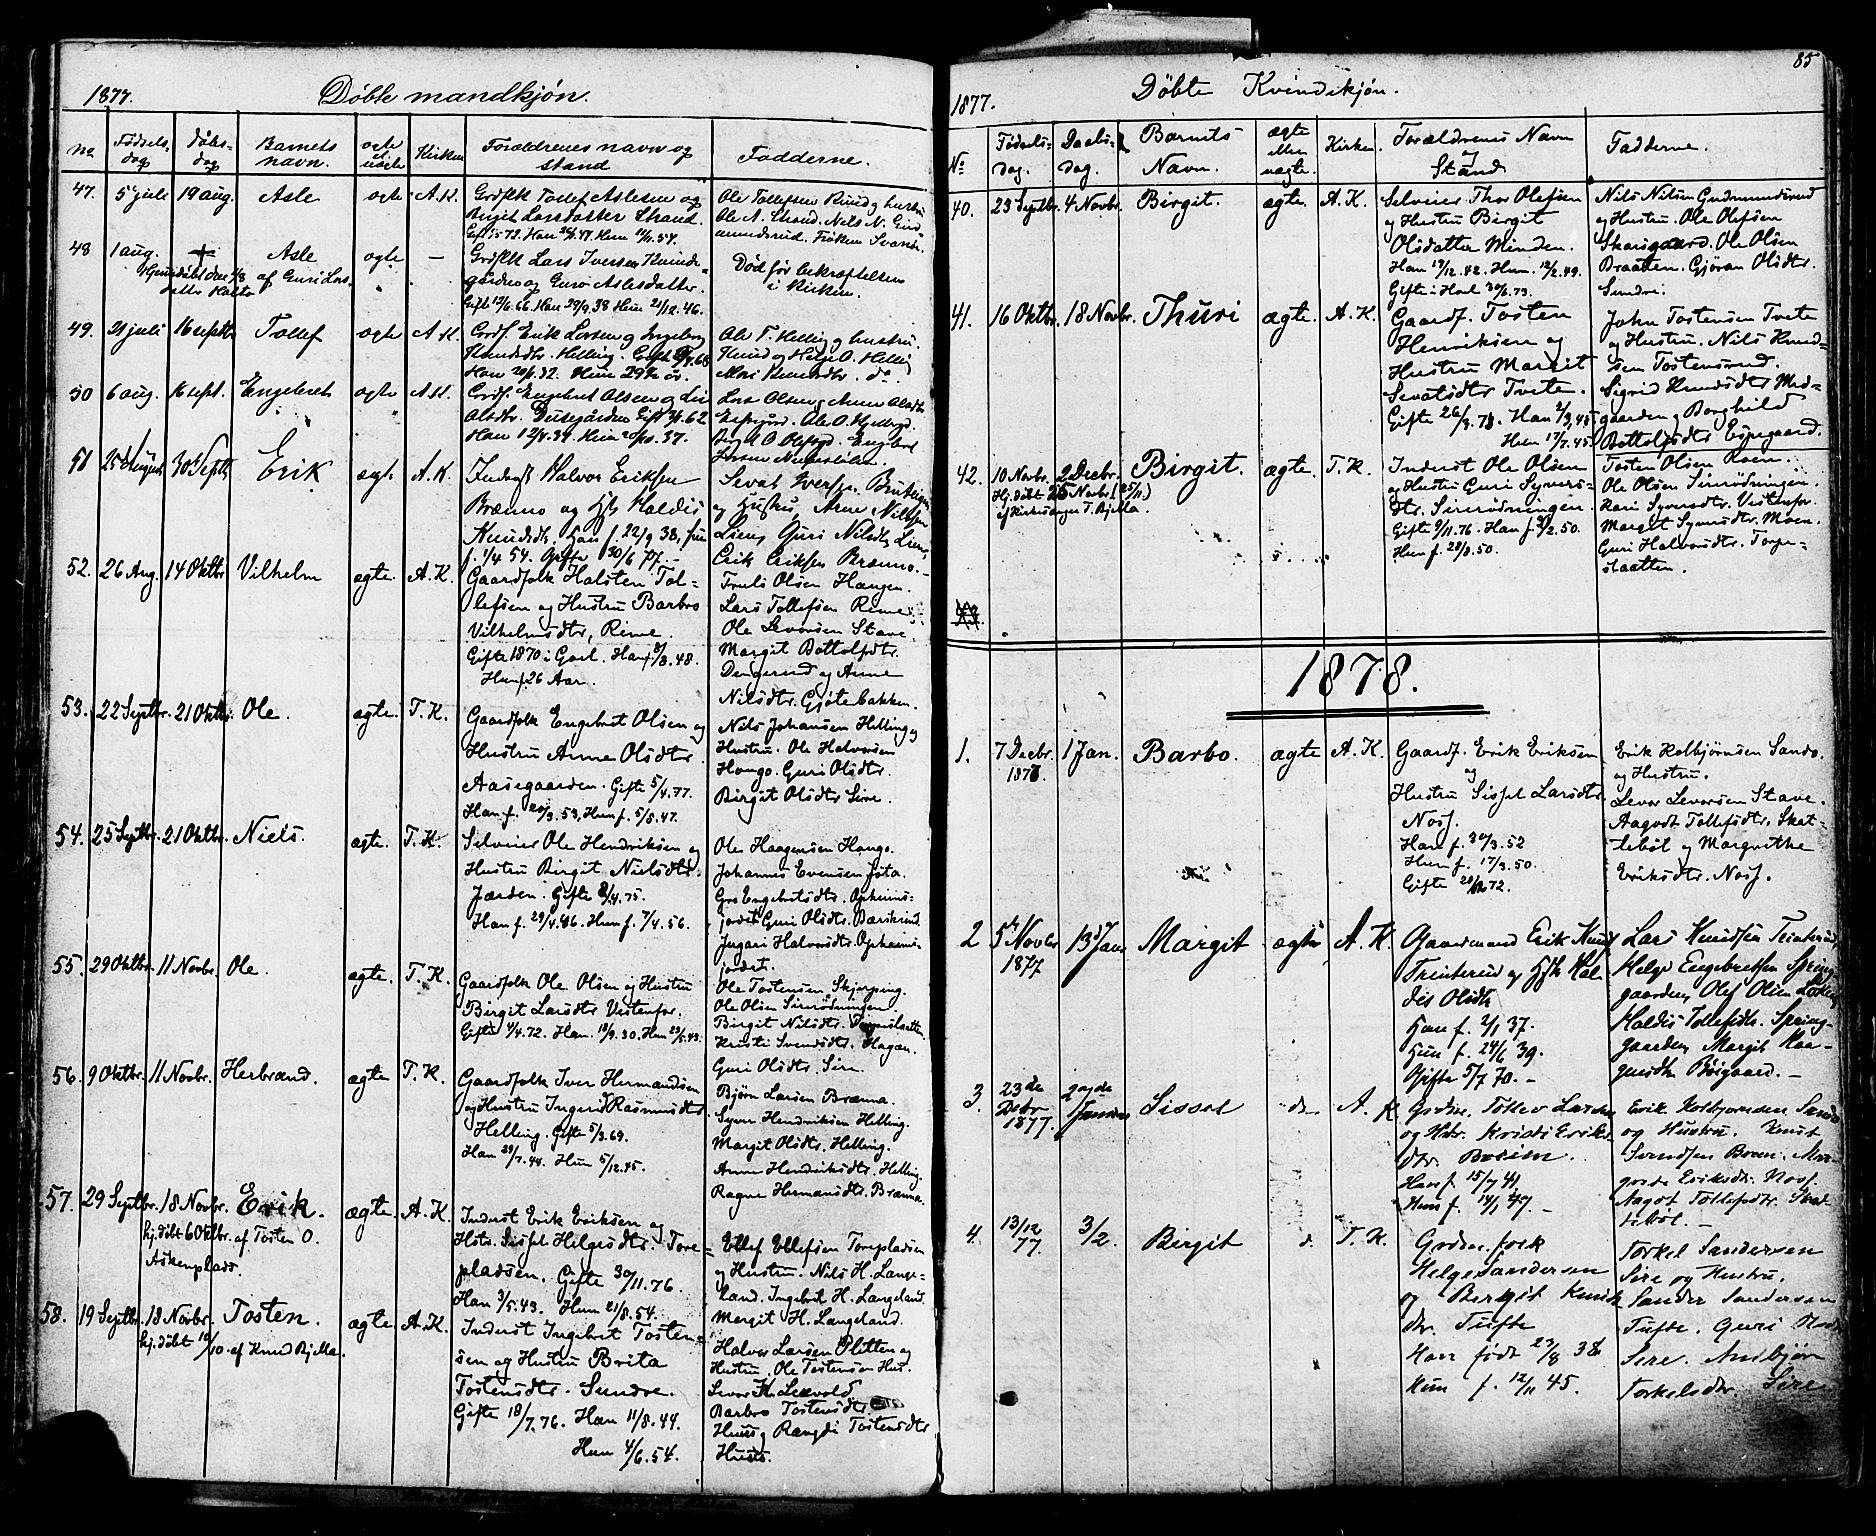 1877.
Döbte mandkjön.
No
Födsels-
dag
Döbs-
dag
Barnets
navn.
ægte
uægte
Kirken
Forældrenes navn og
stand
Fadderne.
47. 5 juli 19 aug. Asle ægte A.K.
Grdflk Tollef Aslesen og
Birgit Larsdatter Strand.
Ole A. Strand. Nils N. Gud-
mundsrud. Fröken
48 1 aug. Asle ægte —
af Guri Lars-
datter
Grdflk Lars Iversen
og Guro Aslesdatter.
Gifte 12/6.66 Han 29/9.38 Hun 21/12.46.
Död för bekræftelsen
i Kirken.
49. 21 juli 16 septb Tollef ægte A.K.
Grdf. Erik Larsen og Ingeborg
Knudsdtr. Helling.
Han 20/6.32. Hun 29½ år.
Ole T. Helling og hustru.
Knud og Helge O. Helling
50 6 aug. 16 sept. Engebret ægte A.K.
Grdf. Engebret Olsen og
Olsdtr.
51 25 August 30 Septb Erik ægt. A.K.
Inderst Halvor Eriksen
Brænno og Hst. Haldis
Knudsdt. Han f. 22/9 38, Hun
f. 1/4 54. Gifte 30/6 77.-
og Hustru, Arne Nilssen
Lien, Guri Nilsdt. Lien,
Erik Eriksen Brænno.-
52. 26 Aug. 14 Oktbr Vilhelm ægte. A.K.
Gaardfolk Halsten Tol-
lefsen og Hustru Barbro
Vilhelmsdtr, Rime.
Gifte 1870 i Goel. Han f. 8/3.48.
Hun f. 26 Aar.
Truls Olsen Haugen.
Lars Tollefsen Rime
Ole Levorsen Stave.
Margit Bottolfsdtr.
Dengerud og Anne
Nilsdtr. Gjötebakken.
53. 22 Septbr. 21 Oktbr. Ole. ægte. T.K.
Gaardfolk Engebret Olsen og
Hustru Anne Olsdtr.
Aasegaarden. Gifte 5/4.77.
Han f. 20/3.53, Hun f. 5/8.47.
Nils Johansen Helling og
Hustru. Ole Halvorsen
Hango. Guri Olsdtr.
Birgit Olsdtr Sire.
54. 25 Septbr. 21 Oktbr. Niels. ægte. T.K.
Selveier Ole Hendriksen og
Hustru Birgit Nielsdtr.
Jorden. Gifte 8/4.75.
Han f. 29/4.46. Hun f. 7/4.56.
Ole Haagensen Hango.
Johannes Evensen Jöta.
Gro Engebretsdtr. Opheims-
jordet. Guri Olsdtr. Bæskrud.
Ingari Halvorsdtr. Opheims-
jordet.
55. 29 Oktbr. 11 Novbr. Ole ægte. T.K.
Gaardfolk Ole Olsen og Hustru
Birgit Larsdtr Vestenfor.
Gifte 4/4.72. Han. 18/9.30. Hun 23/5.43.
Ole Tostensen Skjerping.
Ole Olsen Sinrödningen.
Birgit Nilsdtr.
Kristi Svendsdtr. Hagan.
Guri Olsdtr. Sire.
56. 9 Oktbr. 11 Novbr. Herbrand. ægte T.K.
Gaardfolk Iver Hermandsen
og Hustru Ingerid Rasmusdt.
Helling. Gifte 5/3.69.
Han 29/7.44. Hun 5/12.45.
Björn Larsen Brænna.
Syver Hendriksen Helling.
Margit Olsdtr. Helling.
Anne Hendriksdtr. Helling.
Ragne Hermansdtr. Brænna.
57. 29 Septbr. 18 Novbr. Erik. ægte A.K.
hj.döbt 6 Oktbr. af Tosten O.
Askenplads.
Inderst Erik Eriksen og
Hstr. Sissel Helgesdtr. Tore-
pladsen. Gifte 30/11.76.
Han 3/5.43. Hun 21/8.54.
Ellef Ellefsen Torepladsen
og Hustru. Nils H. Lange-
land. Ingebret H. Langeland.
Margit H. Langeland.
58. 19 Septbr. 18 Novbr. Tosten. ægte A.K.
hj.döbt 10/10. af Knud Bjella.
Inderst Ingebret Tosten-
sen og Hustru Brita
Tostensdtr. Sundre.
Gifte 18/7.76. Han 11/8.44.
Hun 4/6.54.
Halvor Larsen Plitten og
Hustru. Ole Tostensen Hus.
Levor H. Lesvold
Barbro Tostensdtr.
Huus og Rangdi Tostensdtr
Huus.
85
1877.
Döbte Kvindekjön.
No
Födsels-
Dag.
Daabs-
Dag.
Barnets
Navn.
ægte
eller
uægte.
Kirken.
Forældrenes Navn
og
Stand
Fadderne.
40. 23 Septbr. 4 Novbr. Birgit. ægte. A.K.
Selveier Thor Olefsen
og Hustru Birgit
Olsdatter Minden.
Han 17/12.42. Hun. 12/2.49.
Gifte i Hoel 30/6.73.
Nils Nilsen Gudmundsrud
og Hustru. Ole Olefsen
Skarsgaard. Ole Olsen
Braaten. Gjöran Olsdtr.
Sundre.
41. 16 Oktbr. 18 Novbr. Thuri ægte. A.K.
Gaardf. Tosten
Henriksen og
Hustru Margit
Sevatsdtr Tveto.
Gifte 26/3.73. Han 2/3,48
Hun 17/7.45
John Tostensen Tveto
og Hustru. Nils Knud-
sen Tostensrud.
Sigrid Knudsdtr Med-
gaarden og Borghild
Bottolfsdtr Espegaard.
42. 10 Novbr. 2 Decbr. Birgit. ægte. T.K.
Hj.döbt 25 Novbr (25/11.)
af Kirkesanger T. Bjella.
Inderst Ole Olsen
og Hustru Guri Syvers-
dtr. Sinrödningen.
Gifte 9/11.76. Han f. 2/2.50.
Hun f. 20/8.50.
Tosten Olsen Roen.
Ole Olsen Sinrödningen.
Kari Syversdtr. Vestenfor.
Margit Syversdtr. Moen.
Guri Halvorsdtr. Torpe-
slaatten.
1878.
1. 7 Decbr. 1 Jan. Barbo. ægte A.K.
1877.
Gaardf. Erik Eriksen
og
Hustru Sissel Larsdtr.
Nosj.
Han f. 30/3.52
Hun f. 17/3.50.
Gifte 28/12 72.
Erik Kolbjörnsen Sando.
og Hustru.
Levor Levorsen Stave.
Aagodt Tollefsdtr. Skat-
teböl og Margrethe
Eriksdtr. Nosj.
2 5te Novbr 13de Jan Margit ægte A.K.
1877
Gaardmand Erik Knuds
Trinterud og Hst. Hal-
dis Olsdt.
Han f. 2/1 37.
Hun f. 24/6 39.
Gifte 5/7 70.-
Lars Knudsen Trinterud
Helge Engebretsen Spring-
gaarden, Olef Olsen
Haldis Tollefsdtr. Spring-
gaarden, Margit Haa-
gensdtr. Börgaard.-
3. 23de Debr 1877. Sissel do A.K.
Grdm. Tollev Larsen
og Hstr. Kristi Eriks-
dtr. Boriim.
Han f. 15/7 41.
Hun f. 14/1 47.-
Erik Kolbjörnsen Sando
og Hustru. Knut
Svendsen Broen. Mar-
grete Eriksdtr. Nosj.
Aagot Tollefsdtr. Skat-
teböl.-
4. 13/12 77. 3/2. Birgit d. T.K.
Grdm.folk
Helge Sandersen
og Bergit Knuds
dtr. Tufte
Han födt 23/8 38
Hun f. 12/11 45.
Torkel Sandersen
Sire og Hustru.
Sander Sandersen
Tufte. Guri
Sire. Andbjör
Torkelsdtr. Sire